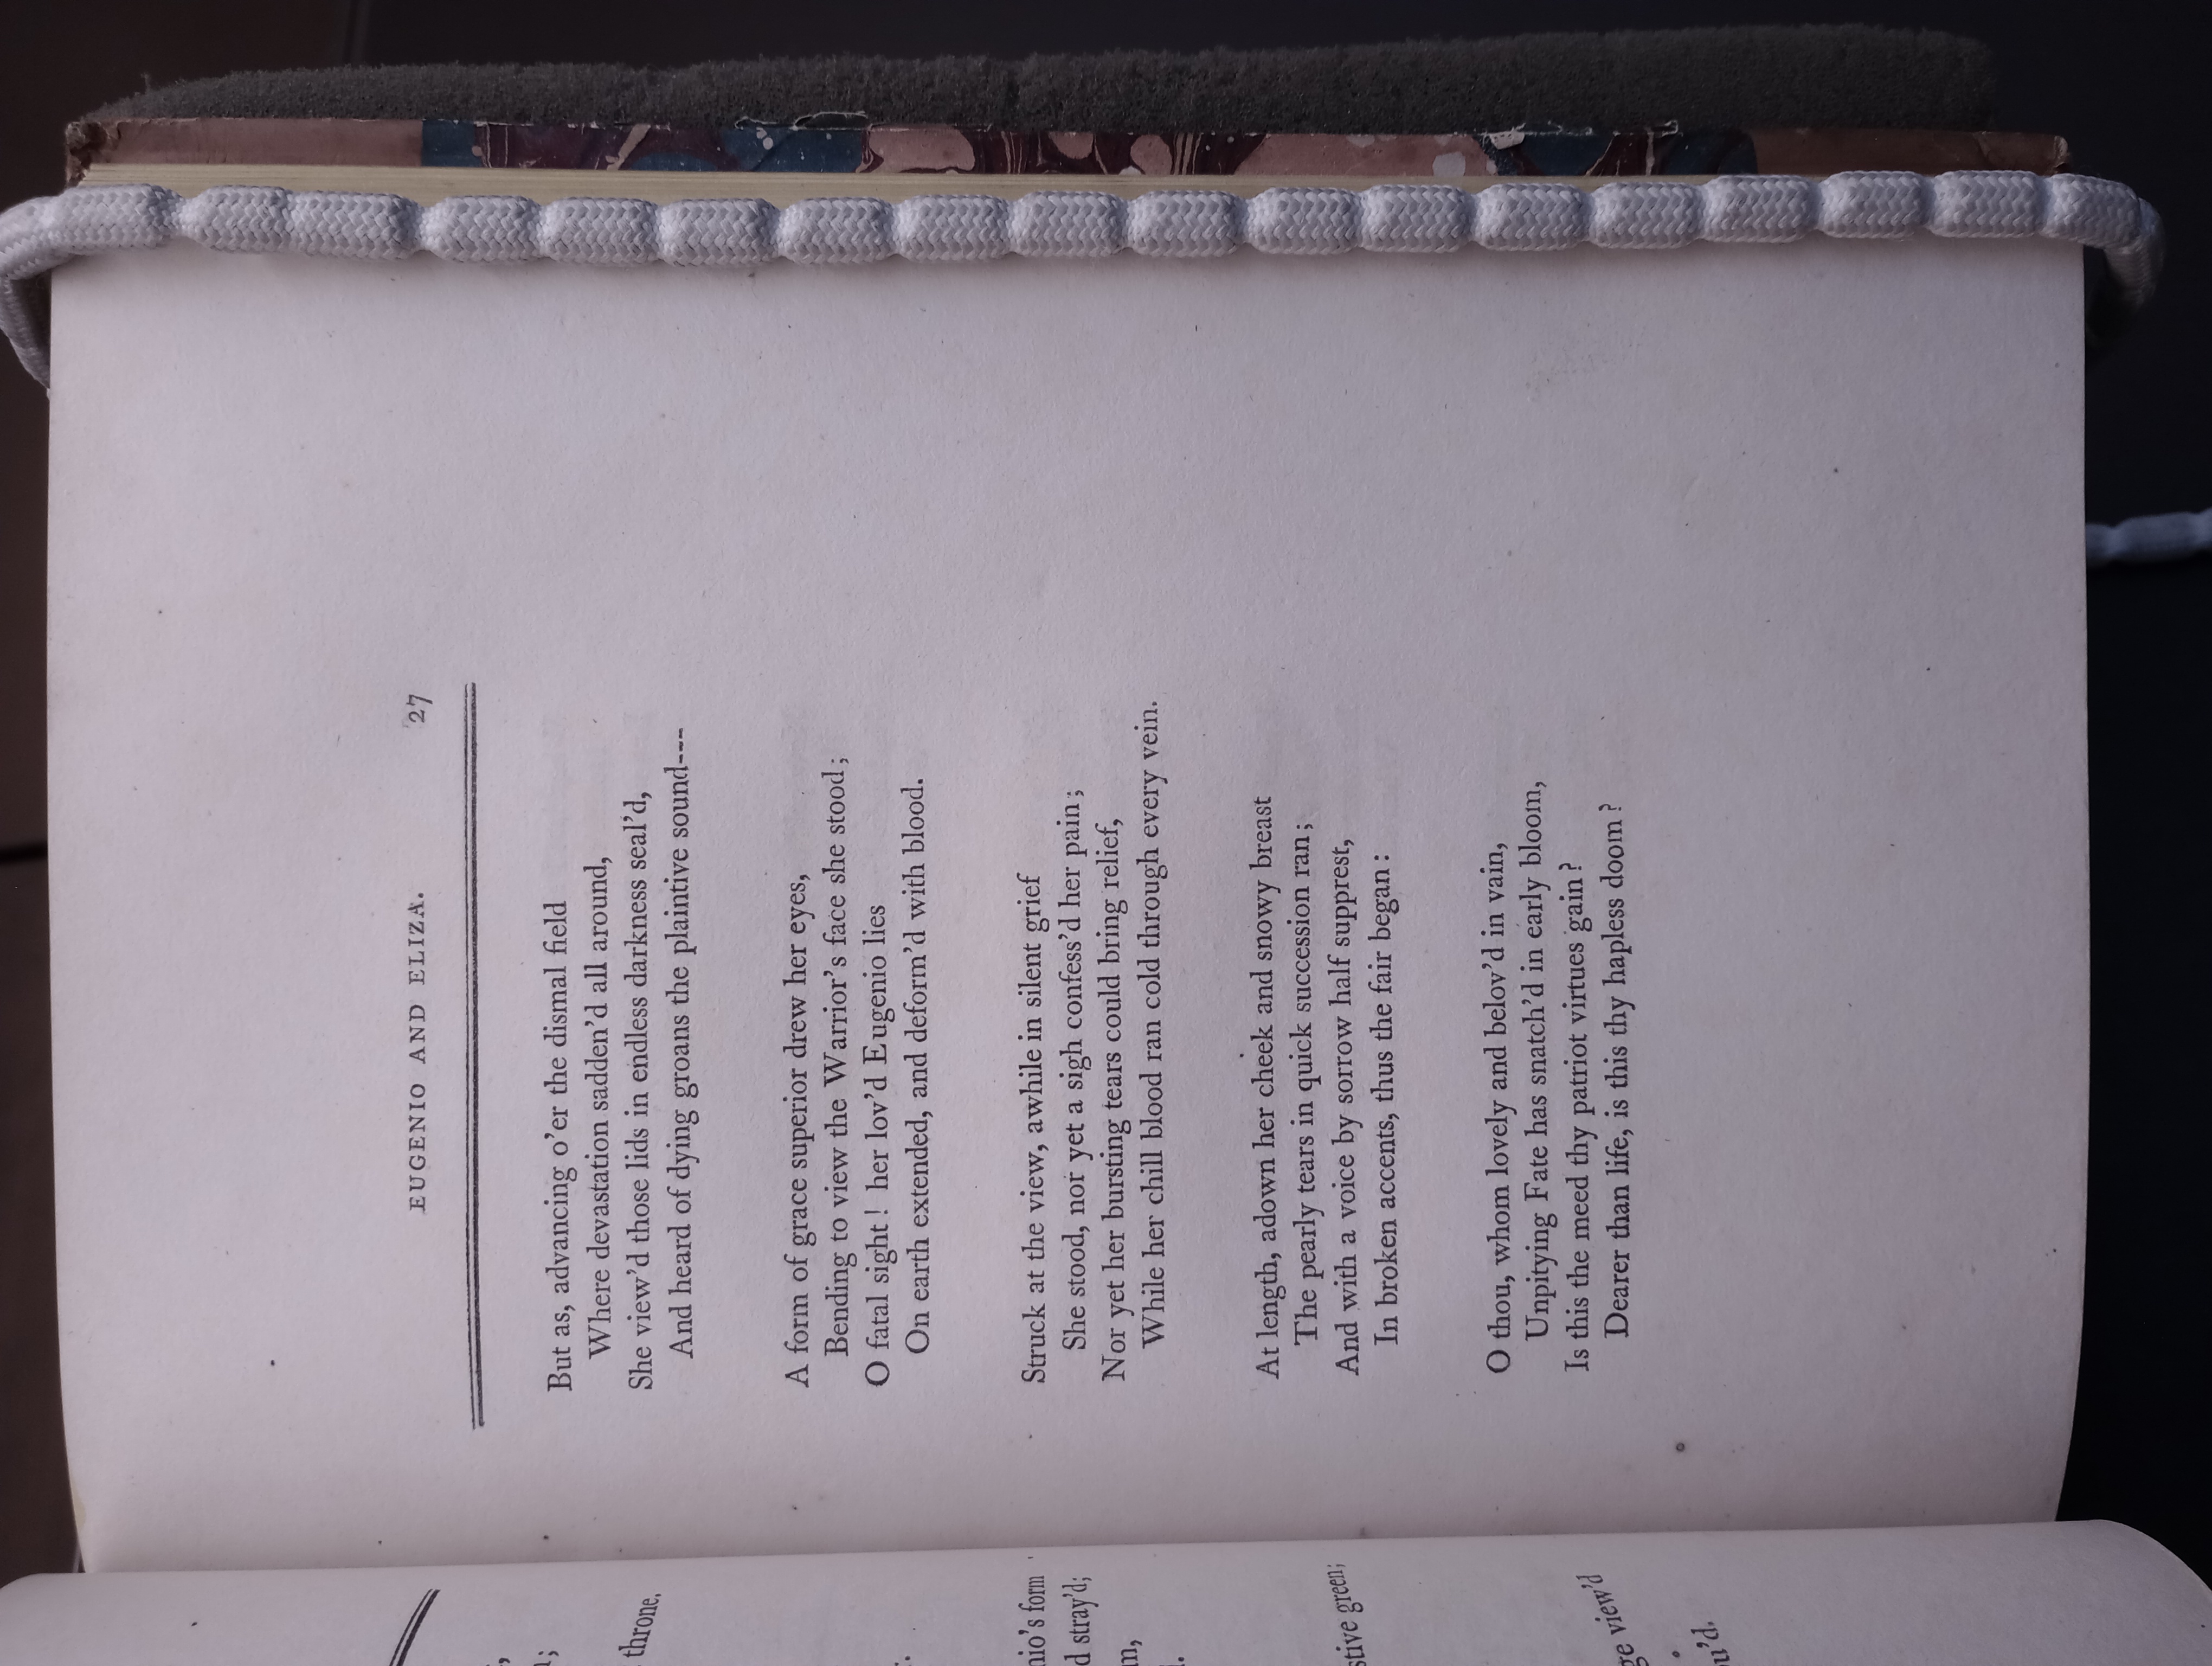 EUGENIO AND ELIZA. 27
But as, advancing o'er the dismal field
Where devastation sadden'd all around,
She view'd those lids in endless darkness seal'd,
And heard of dying groans the plaintive sound---
A form of grace superior drew her eyes,
Bending to view the Warrior's face she stood;
O fatal sight! her lov'd Eugenio lies
On earth extended, and deform'd with blood.
Struck at the view, awhile in silent grief
She stood, nor yet a sigh confess'd her pain;
Nor yet her bursting tears could bring relief,
While her chill blood ran cold through every vein.
At length, adown her cheek and snowy breast
The pearly tears in quick succession ran;
And with a voice by sorrow half supprest,
In broken accents, thus the fair began:
O thou, whom lovely and belov'd in vain,
Unpitying Fate has snatch'd in early bloom,
Is this the meed thy patriot virtues gain?
Dearer than life, is this thy hapless doom?
throne.
form
stray'd;
green;
view'd